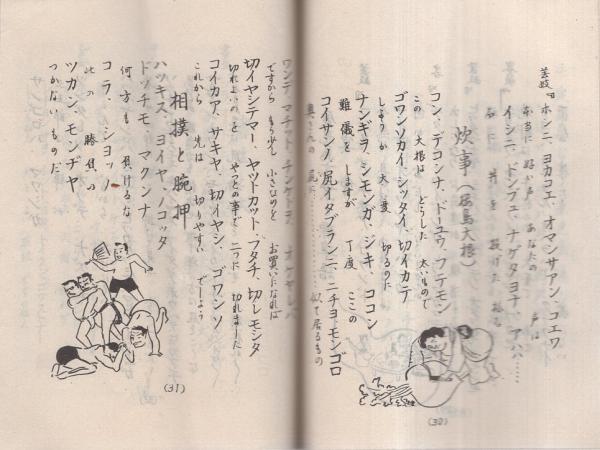 芸妓『ホンニ、ヨカコエ、オマンサアン、コエワ
本当に 好か声 あなたの 声は
イシニ、ドンブエ、ナゲタヨナ、アハ……
石に 丼を 投げた 様な
炊事(桜島大根)
コン、デコンナ、ドーユウ、フテモン
この 大根は どうした 太いもので
ゴワンソカイ、シッタイ、切イカテ
しょうか 大変 切るのに
ナンギヲ、シモンガ、ジキ、ココン
難儀をしますが 丁度 ここの
コイサンノ、尻イタブランニ、ニチヨ、モンゴロ
奥さんの 尻に………… 似て居るもの
(30)
ワンデ マチット チンケトヲ オケヤレバ
ですから もう少し 小さなのを お買いになれば
切イヤシテマー、ヤットカット、フタチ、切レモシタ
切れよいのを やっとの事で 二つに 切れました
コイカア、サキヤ、切イヤシ、ゴワンソ
これから 先は 切りやすい でしょう
相撲と腕押
ハッキス、ヨイヤ、ノコッタ
ドッチモ、マクンナ
何方も 負けるな
コラ、ショッノ
此の 勝負の
ツカン、モンヂヤ
つかない ものだ
(31)